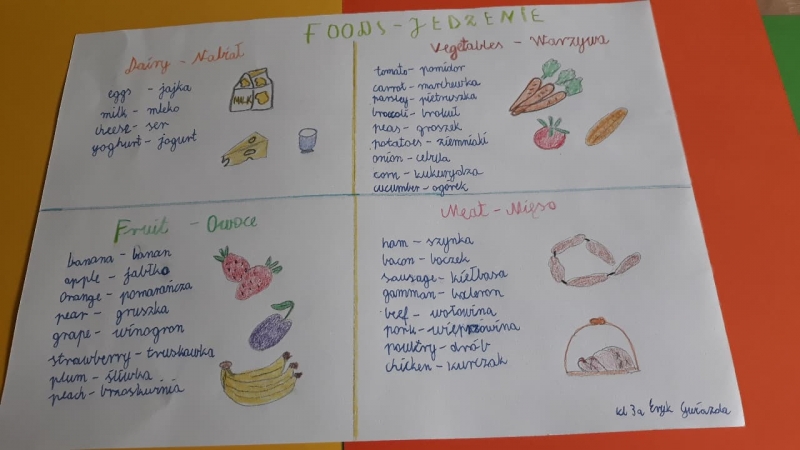 FOODS - JEDZENIE
Dairy - Nabiał
eggs - jajka
milk - mleko
cheese - ser
yoghurt - jogurt
MILK
Vegetables - Warzywa
tomato - pomidor
carrot - marchewka
parsley - pietruszka
brocoli - brokuł
peas - groszek
potatoes - ziemniaki
onion - cebula
corn - kukurydza
cucumber - ogórek
Fruit - Owoce
banana - banan
apple - jabłko
orange - pomarańcza
pear - gruszka
grape - winogron
strawberry - truskawka
plum - śliwka
peach - brzoskwinia
Meat - Mięso
ham - szynka
bacon - boczek
sausage - kiełbasa
gamman - baleron
beef - wołowina
pork - wieprzowina
poultry - drób
chicken - kurczak
kl 3a Eryk Gwiazda